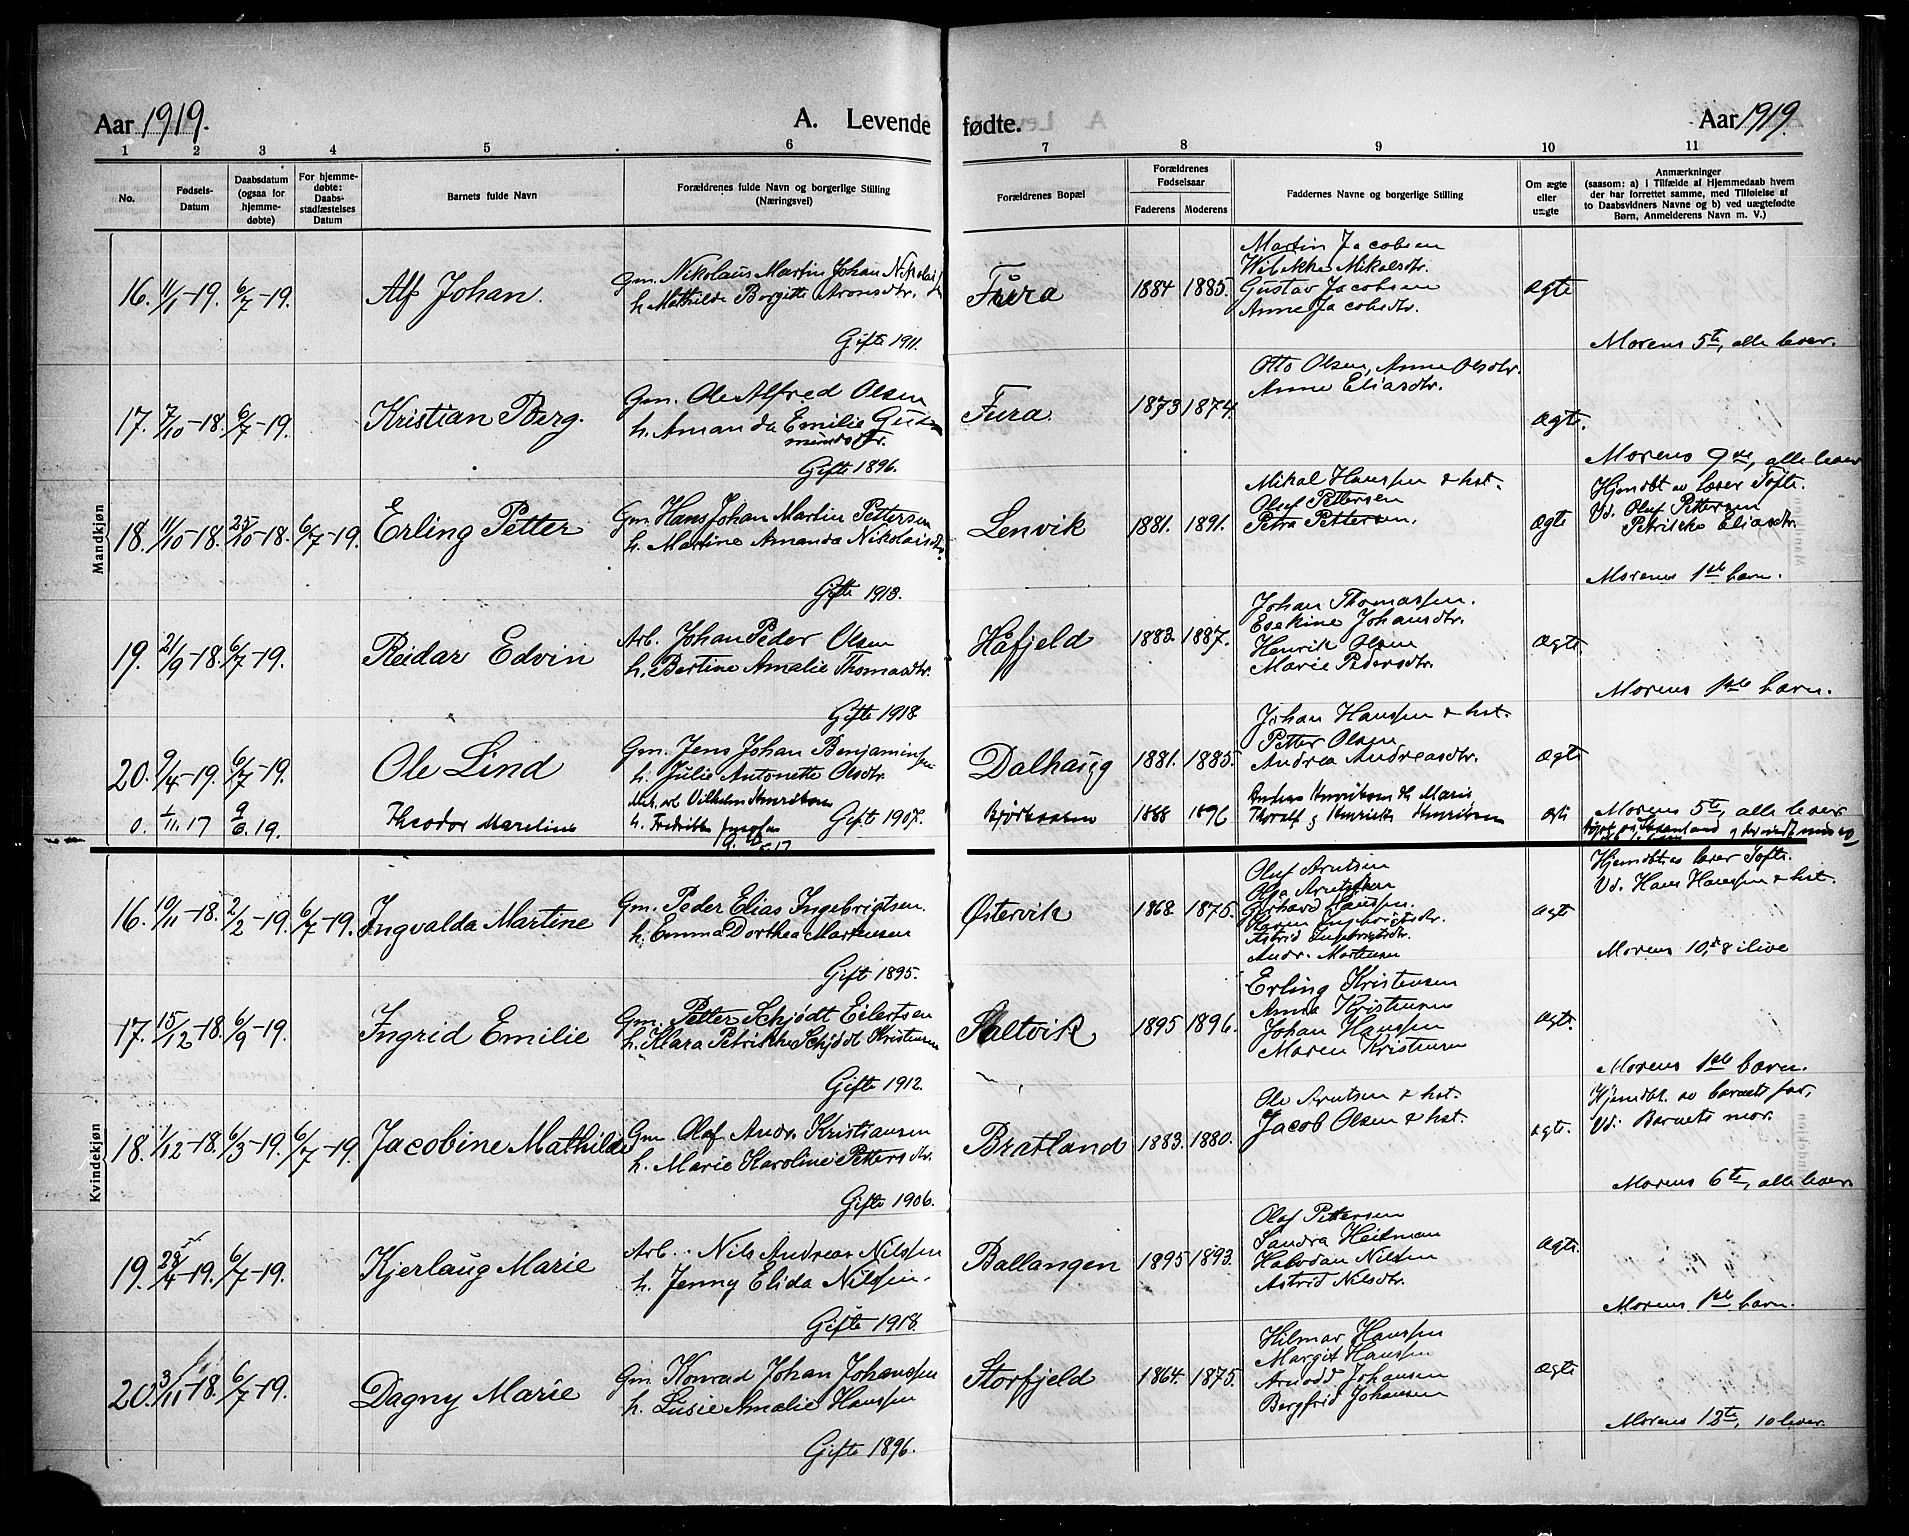 Aar 1919. A. Levende fødte. Aar 1919.
1 2 3 4 5 6 7 8 9 10 11
No.
Fødsels-
Datum
Daabsdatum
(ogsaa for
hjemme-
døbte)
For hjemme-
døbte:
Daabs-
stadfæstelses
Datum
Barnets fulde Navn
Forældrenes fulde Navn og borgerlige Stilling
(Næringsvei)
Forældrenes Bopæl
Forældrenes
Fødselsaar
Faderens Moderens
Faddernes Navne og borgerlige Stilling
Om ægte
eller
uægte
Anmærkninger
(saasom: a) i Tilfælde af Hjemmedaab hvem
der har forrettet samme, med Tilføielse af
to Daabsvidners Navne og b) ved uægtefødte
Børn, Anmelderens Navn m. V.)
Mandkjøn
16. 11/1-19. 6/7-19. Alf Johan.
Gm. Nikolaus Martin Johan
h. Mathilde Borgitte Aronsdtr.
Gifte 1911.
Fura 1884 1885.
Martin Jacobsen
Wibekke Mikalsdtr.
Gustav Jacobsen
Anne Jacobsdtr.
Ægte
Morens 5te, alle lever.
17. 7/10-18. 6/7-19. Kristian Berg.
Gm. Ole Alfred Olsen
h. Amanda Emilie Gud-
mundsdtr.
Gifte 1896.
Fura. 1873 1874.
Otto Olsen, Anne Olsdtr.
Anne Eliasdtr.
Ægte.
Morens 9de, alle lever
18. 11/10-18. 25/10-18. 6/7-19. Erling Petter
Gm. Hans Johan Martin Pettersen
h. Martine Amanda Nikolaisdtr.
Gifte 1918.
Lenvik 1881. 1891.
Mikal Hanssen & hst.
Oluf Pettersen
Petra Pettersen.
Ægte
Hjemdbt av lærer Tofte.
Vd. Oluf Pettersen
Petrikke Eliasdtr.
Morens 1ste barn.
19. 21/9-18. 6/7-19. Reidar Edvin
Arb. Johan Peder Olsen
h. Bertine Amalie Thomasdtr.
Gifte 1918.
Håfjeld 1882. 1887.
Johan Thomassen.
Esekine Johansdtr.
Henrik Olsen
Marie Pedersdtr.
Ægte
Morens 1ste barn.
20. 9/4-19. 6/7-19. Ole Lind
Gm. Jens Johan Benjaminsen
h. Julie Antonette Olsdtr
Gift 1907.
Dalhaug 1881. 1885.
Johan Hanssen & hst.
Petter Olsen
Andrea Andreasdtr.
Ægte
Morens 5te, alle lever
0. 1/11.17 9/6.19. Theodor Mareline
Vilhelm Henriksen
h. Fredrikke
Bjørkaasen 1888 1896
Anders Henriksen Marie
Thoralf og Henriette Henriksen
ægte
Kvindekjøn
16. 10/11-18. 2/2-19. 6/7-19. Ingvalda Martine
Gm. Peder Elias Ingebrigtsen.
h. Emma Dorthea Martensen
Gift 1895.
Østervik 1868. 1875.
Oluf Arntsen
Olga Arntsen
Gerhard Hanssen.
Karen Ingebrigtsdtr.
Astrid Ingebrigtsdtr.
Andr. Mortensen
Ægte
Hjemdbt av lærer Tofte.
Vd. Hans Hanssen & hst.
Morens 10de 8 ilive
17. 15/12-18. 6/9-19. Ingrid Emilie
Gm. Petter Schjødt Eilertsen
h. Klara Petrikke Schjødt Kristensen
Gifte 1912.
Saltvik 1895 1896.
Erling Kristensen
Anna Kristensen
Johan Hanssen
Maren Kristensen
Ægte.
Morens 1ste barn.
18. 1/12-18. 6/3-19. 6/7-19. Jacobine Mathilde
Gm. Olaf Andr. Kristiansen
h. Marie Karoline Pettersdtr.
Gifte 1906.
Bratland 1883. 1880.
Ole Arntsen & hst.
Jacob Olsen & hst.
Ægte.
Hjemdbt. av barnets far,
Vd. Barnets mor.
Morens 6te, alle lever
19. 28/4-19. 6/7-19. Kjerlaug Marie
Arb. Nils Andreas Nilssen
h. Jenny Elida Nilssen.
Gifte 1918.
Ballangen 1895 1893.
Olaf Pettersen
Sandra Heitman
Halvdan Nilssen
Astrid Nilsdtr.
Ægte
Morens 1ste barn.
20. 3/11-18. 6/7-19. Dagny Marie
Gm. Konrad Johan Johanssen
h. Lusie Amalie Hanssen
Gifte 1896.
Storfjeld 1864. 1875.
Hilmar Hanssen
Margit Hanssen
Arnodd Johansen
Bergfrid Johansen
Ægte
Morens 12te, 10 lever.